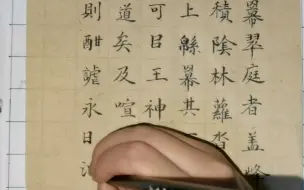 冪翠庭者盖峰
積陰林蘿沓
上緜冪其
可㠯王神
道矣及喧
則酣謔永日